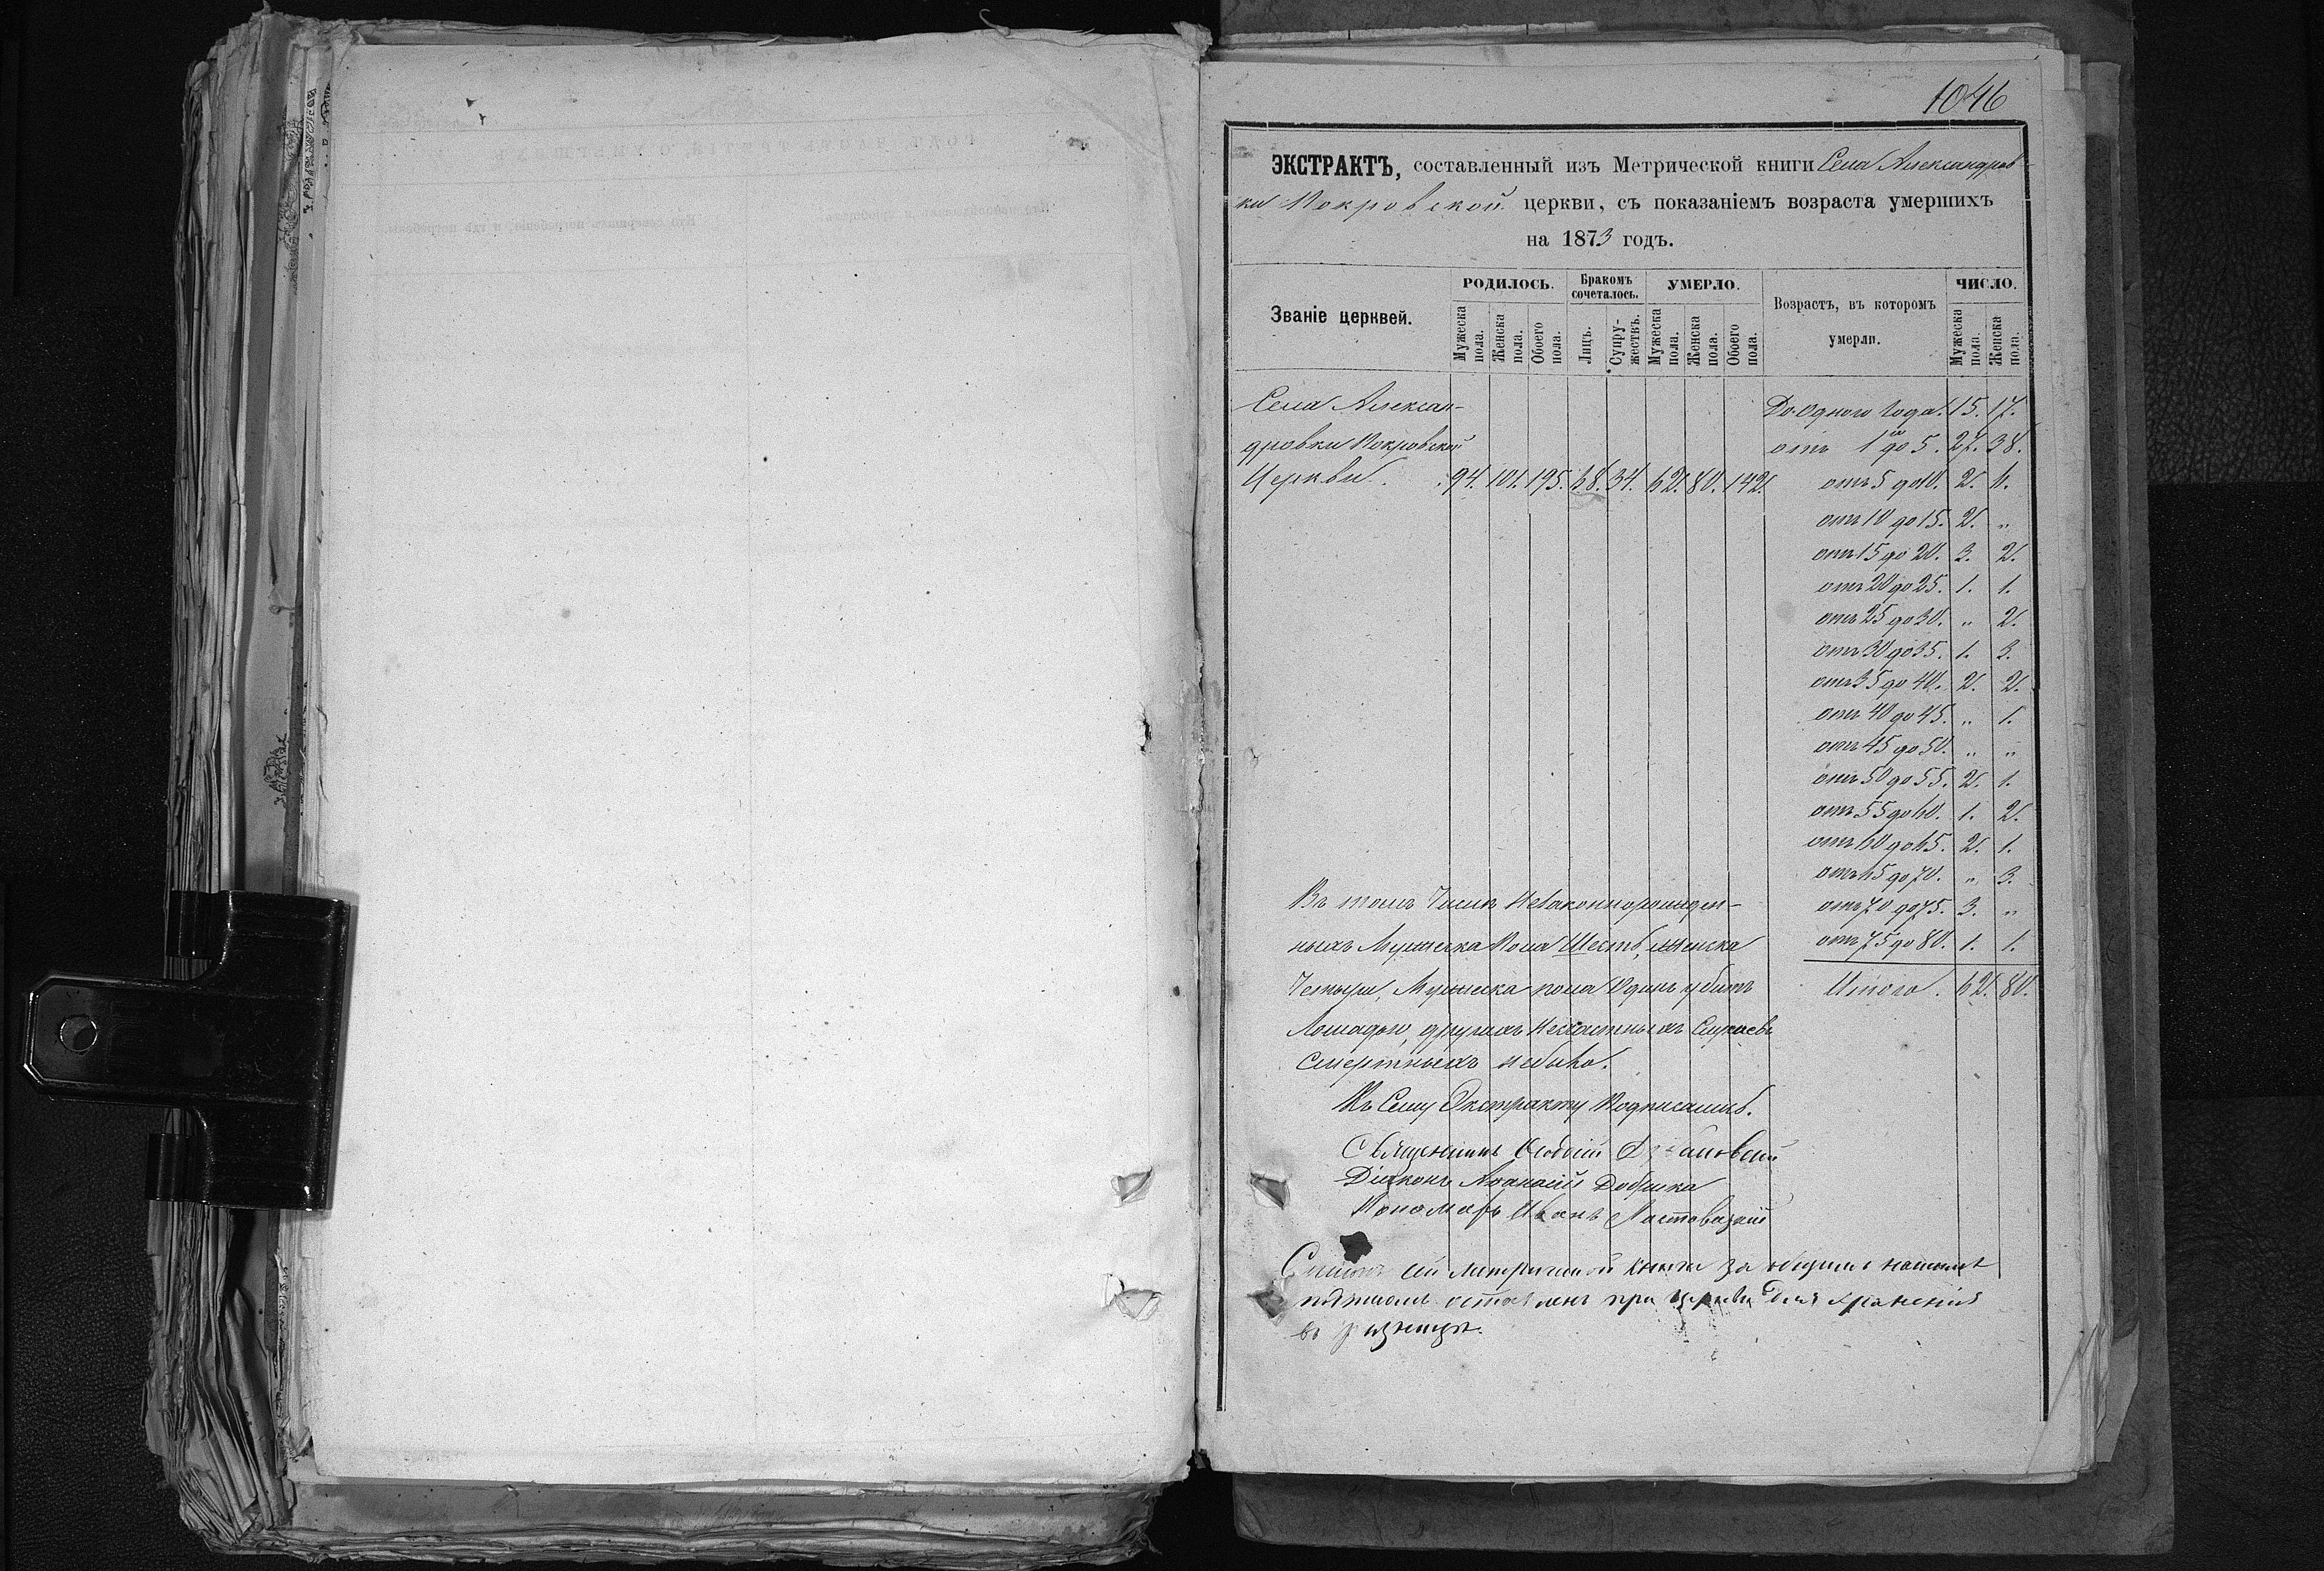 1046
ЭКСТРАКТЪ, составленный изъ Метрической книги Села Александров-
ки Покровской церкви, съ показаніемъ возраста умершихъ
на 1873 годъ.
Званіе церквей.
РОДИЛОСЬ.
Бракомъ сочеталось.
УМЕРЛО.
Возрастъ, въ которомъ умерли.
ЧИСЛО.
Мужеска пола. Женска пола. Обоего пола. Лицъ. Супру-жествъ. Мужеска пола. Женска пола. Обоего пола. Мужеска пола. Женска пола.
Села Алексан-
дровки Покровской
Церкви. 94. 101. 195. 68. 34. 62. 80. 142.
До одного года. 15. 17.
отъ 1го до 5. 27. 38.
отъ 5 до 10. 2. 6.
отъ 10 до 15. 2. „
отъ 15 до 20. 3. 2.
отъ 20 до 25. 1. 1.
отъ 25 до 30. „ 2.
отъ 30 до 35. 1. 3.
отъ 35 до 40. 2. 2.
отъ 40 до 45. „ 1.
отъ 45 до 50. „ „
отъ 50 до 55. 2. 1.
отъ 55 до 60. 1. 2.
отъ 60 до 65. 2. 1.
отъ 65 до 70. „ 3.
отъ 70 до 75. 3. „
отъ 75 до 80. 1. 1.
Итого. 62. 80.
Въ томъ Числѣ Незаконнорожден-
ныхъ Мужеска Пола Шесть, женска
Четыре, Мужеска пола Одинъ убитъ
Лошадью, другихъ Нещастныхъ Случаевъ
Смертныхъ небыло.
Къ Сему Экстракту Подписались.
Священникъ
Діаконъ Афанасій Добрика
Пономарь Иванъ
Списокъ сей метрической книги за общимъ нашимъ
подписомъ оставленъ при церкви для храненія
въ ризницѣ.